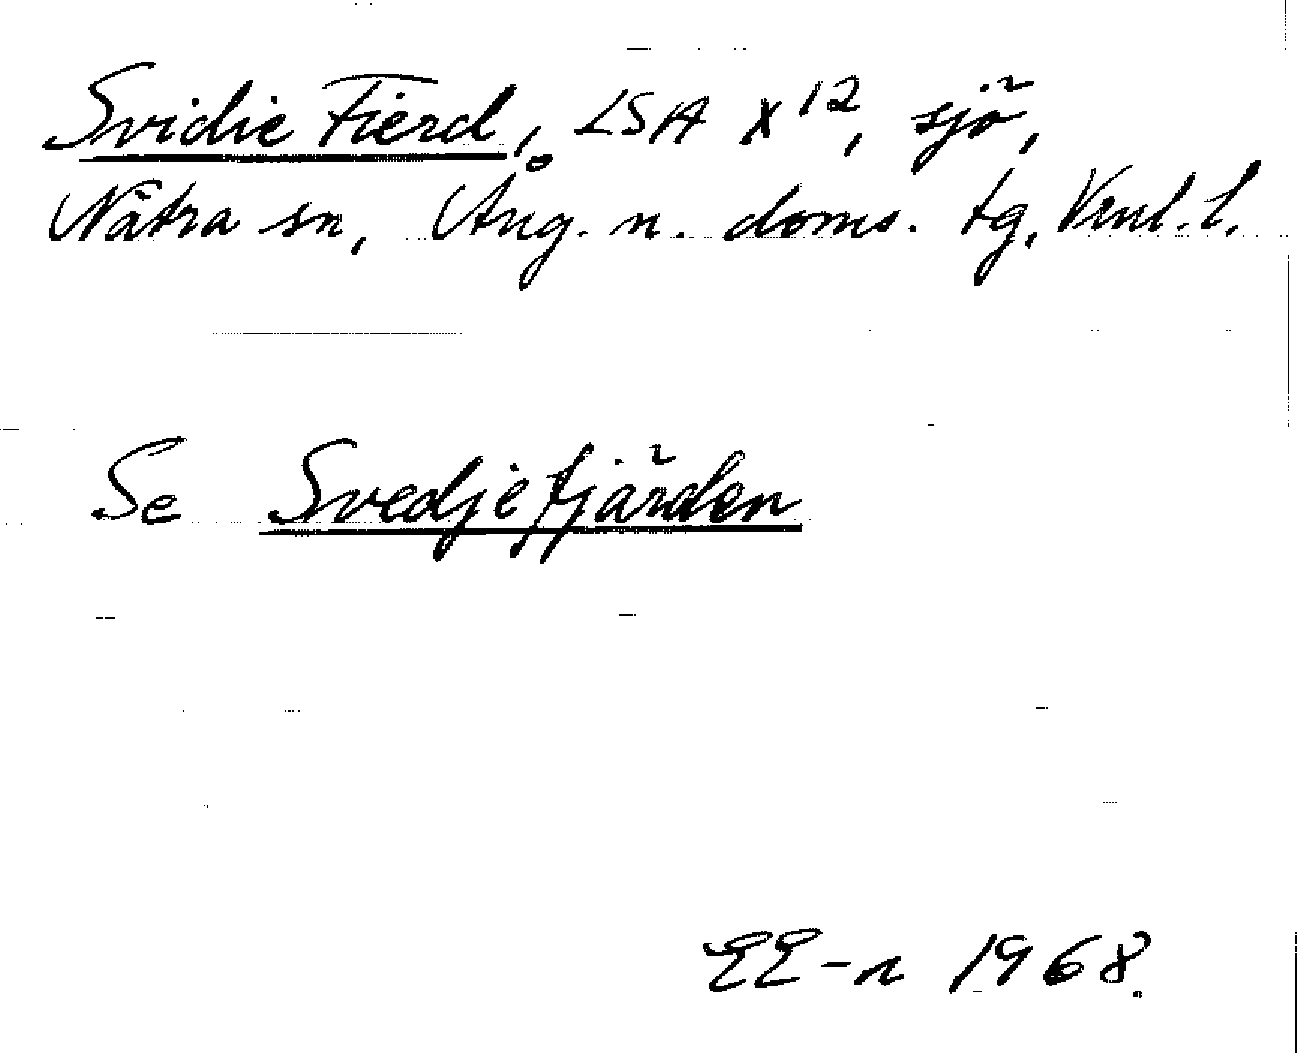 Svidie Fierd, LSA X 12, sjö,
Nätra sn, Ång. n. doms. tg, Vnl. l.
Se Svedjefjärden
EE-n 1968.